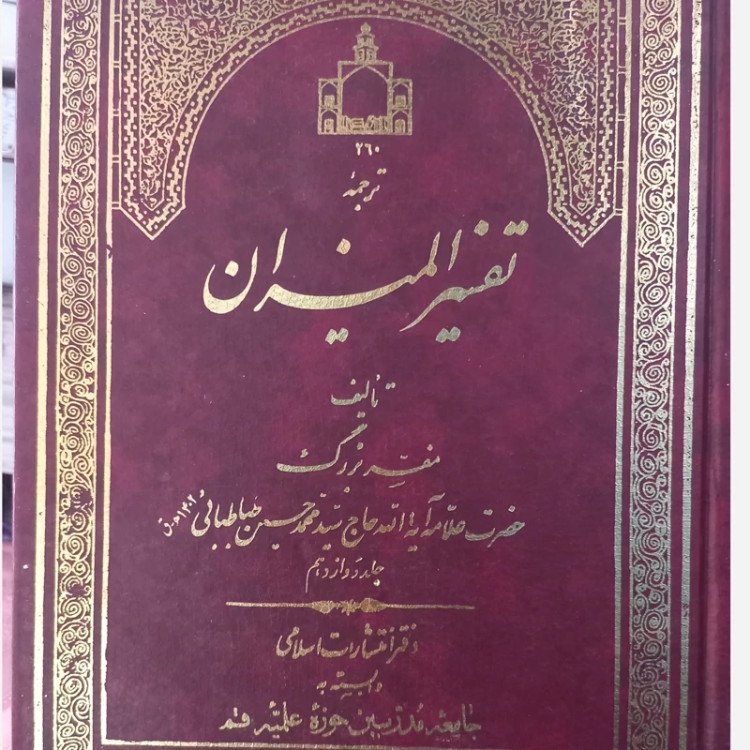 ۲۶۰
ترجمهٔ
تفسیر المیزان
تألیف
مفسّر بزرگ
حضرت علّامه آیة الله حاج سیّد محمد حسین طباطبائی ۱۴۰۲ ه‍.ق
جلد دوازدهم
دفتر انتشارات اسلامی
وابسته به
جامعهٔ مدرسین حوزهٔ علمیّه قم